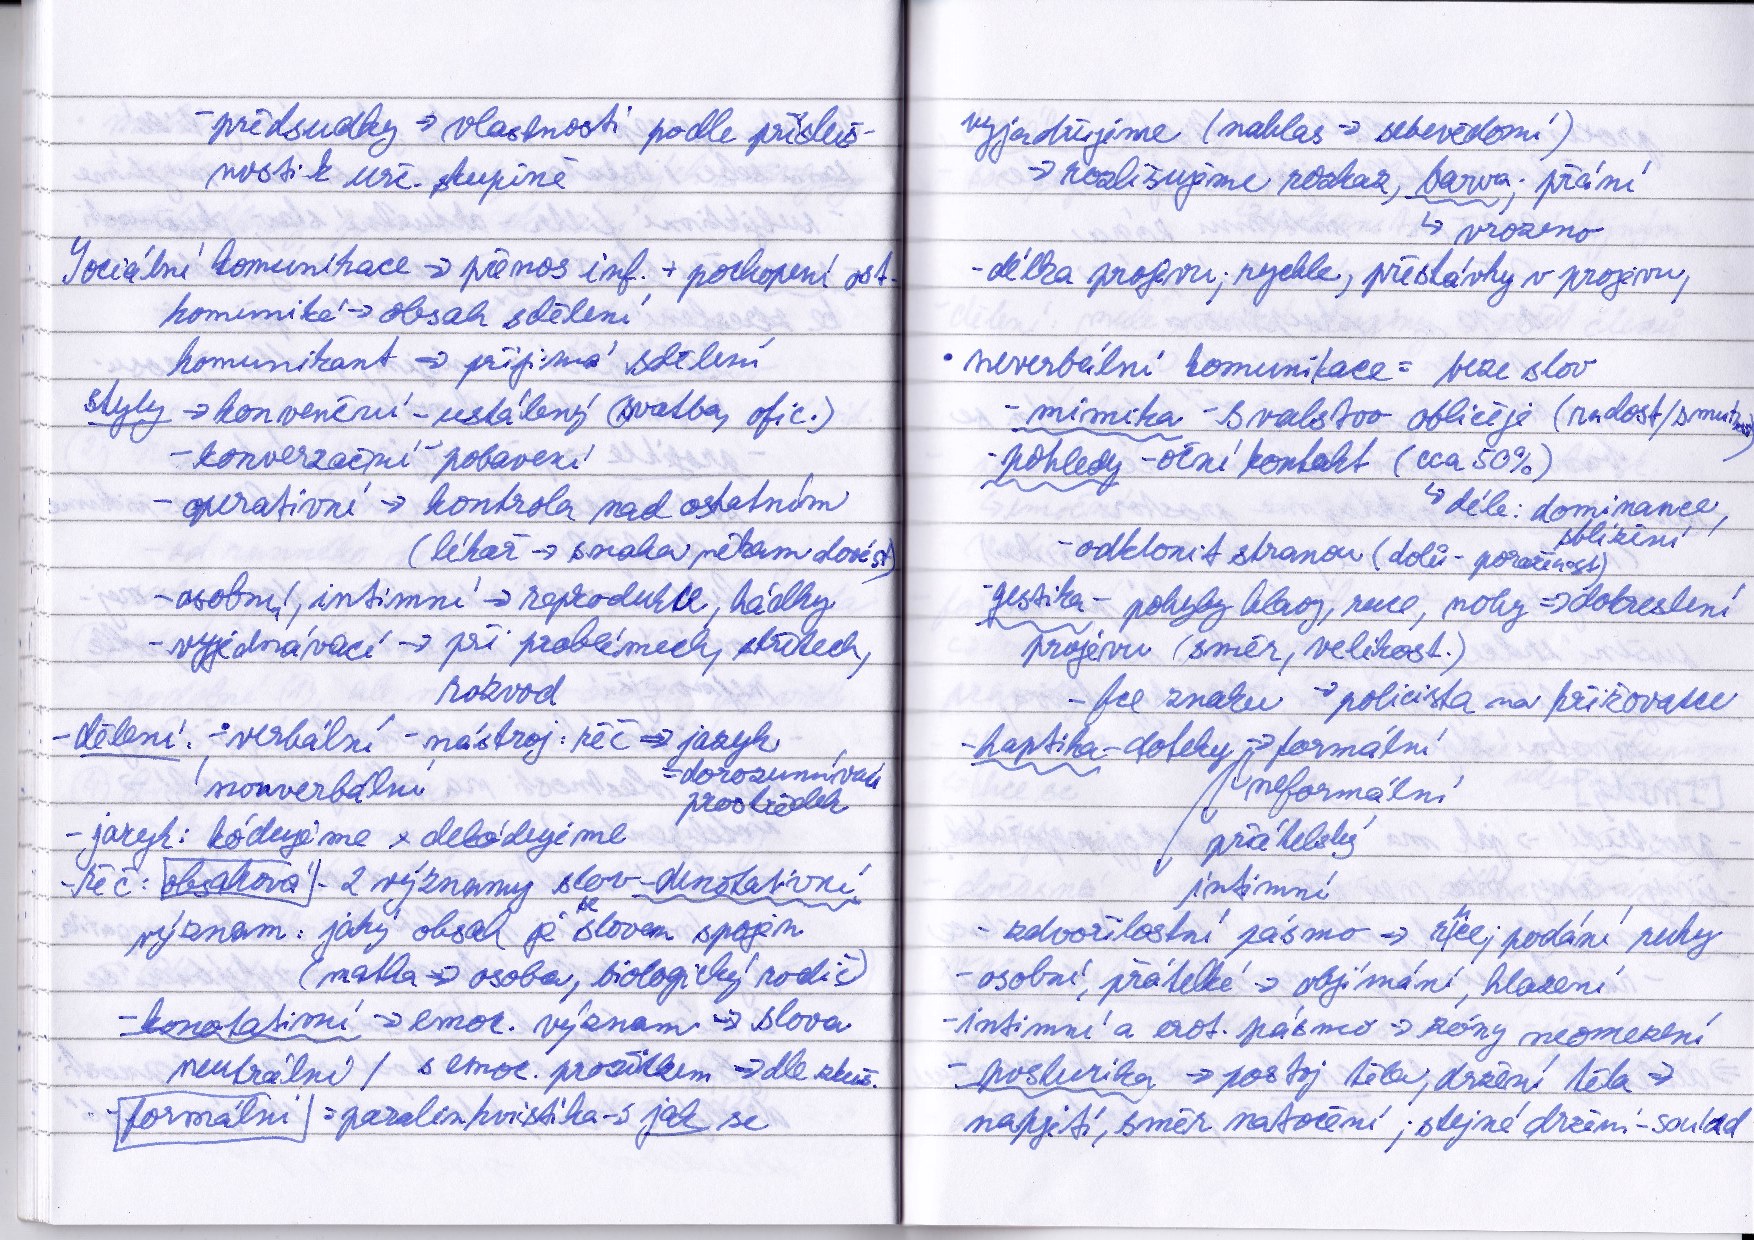 - předsudky → vlastnosti podle přísluš-
nosti k urč. skupině
Sociální komunikace → přenos inf. + pochopení ost.
komuniké → obsah sdělení
komunikant → přijímá sdělení
styly → konvenční - ustálený (svatba, ofic.)
- konverzační - pobavení
- operativní → kontrola nad ostatním
(lékař → snaha někam dovést)
- osobní, intimní → reprodukce, hádky
- vyjednávací → při problémech, střetech,
rozvod
- dělení: - verbální - nástroj: řeč → jazyk
nonverbální = dorozumívací
prostředek
- jazyk: kódujeme x dekódujeme
- řeč: obsahová - 2 významy slov - denotativní
význam: jaký obsah je se slovem spojen
(matka → osoba, biologický rodič)
- konotativní → emoc. význam → slova
neutrální / s emoc. prožitkem → dle zkuš.
- formální = paralinkvistika → jak se
vyjadřujeme (nahlas → sebevědomí)
→ rozlišujeme rozkaz, barva, přání
↳ vrozeno
- délka projevu; rychle, přestávky v projevu,
• neverbální komunikace = beze slov
- mimika - svalstvo obličeje (radost/smutek)
- pohledy - oční kontakt (cca 50%)
↳ déle: dominance,
sblížení
- odklonit stranou (dolů - poraženost)
- gestika - pohyby hlavy, ruce, nohy → dokreslení
projevu (směr, velikost.)
- fce znaku → policista na křižovatce
- haptika - doteky → formální
neformální
přátelský
intimní
- zdvořilostní pásmo → ruce; podání ruky
- osobní, přátelké → objímání, hlazení
- intimní a erot. pásmo → zóny neomezení
- posturika → postoj těla, držení těla →
napjetí, směr natočení; stejné držení - soulad